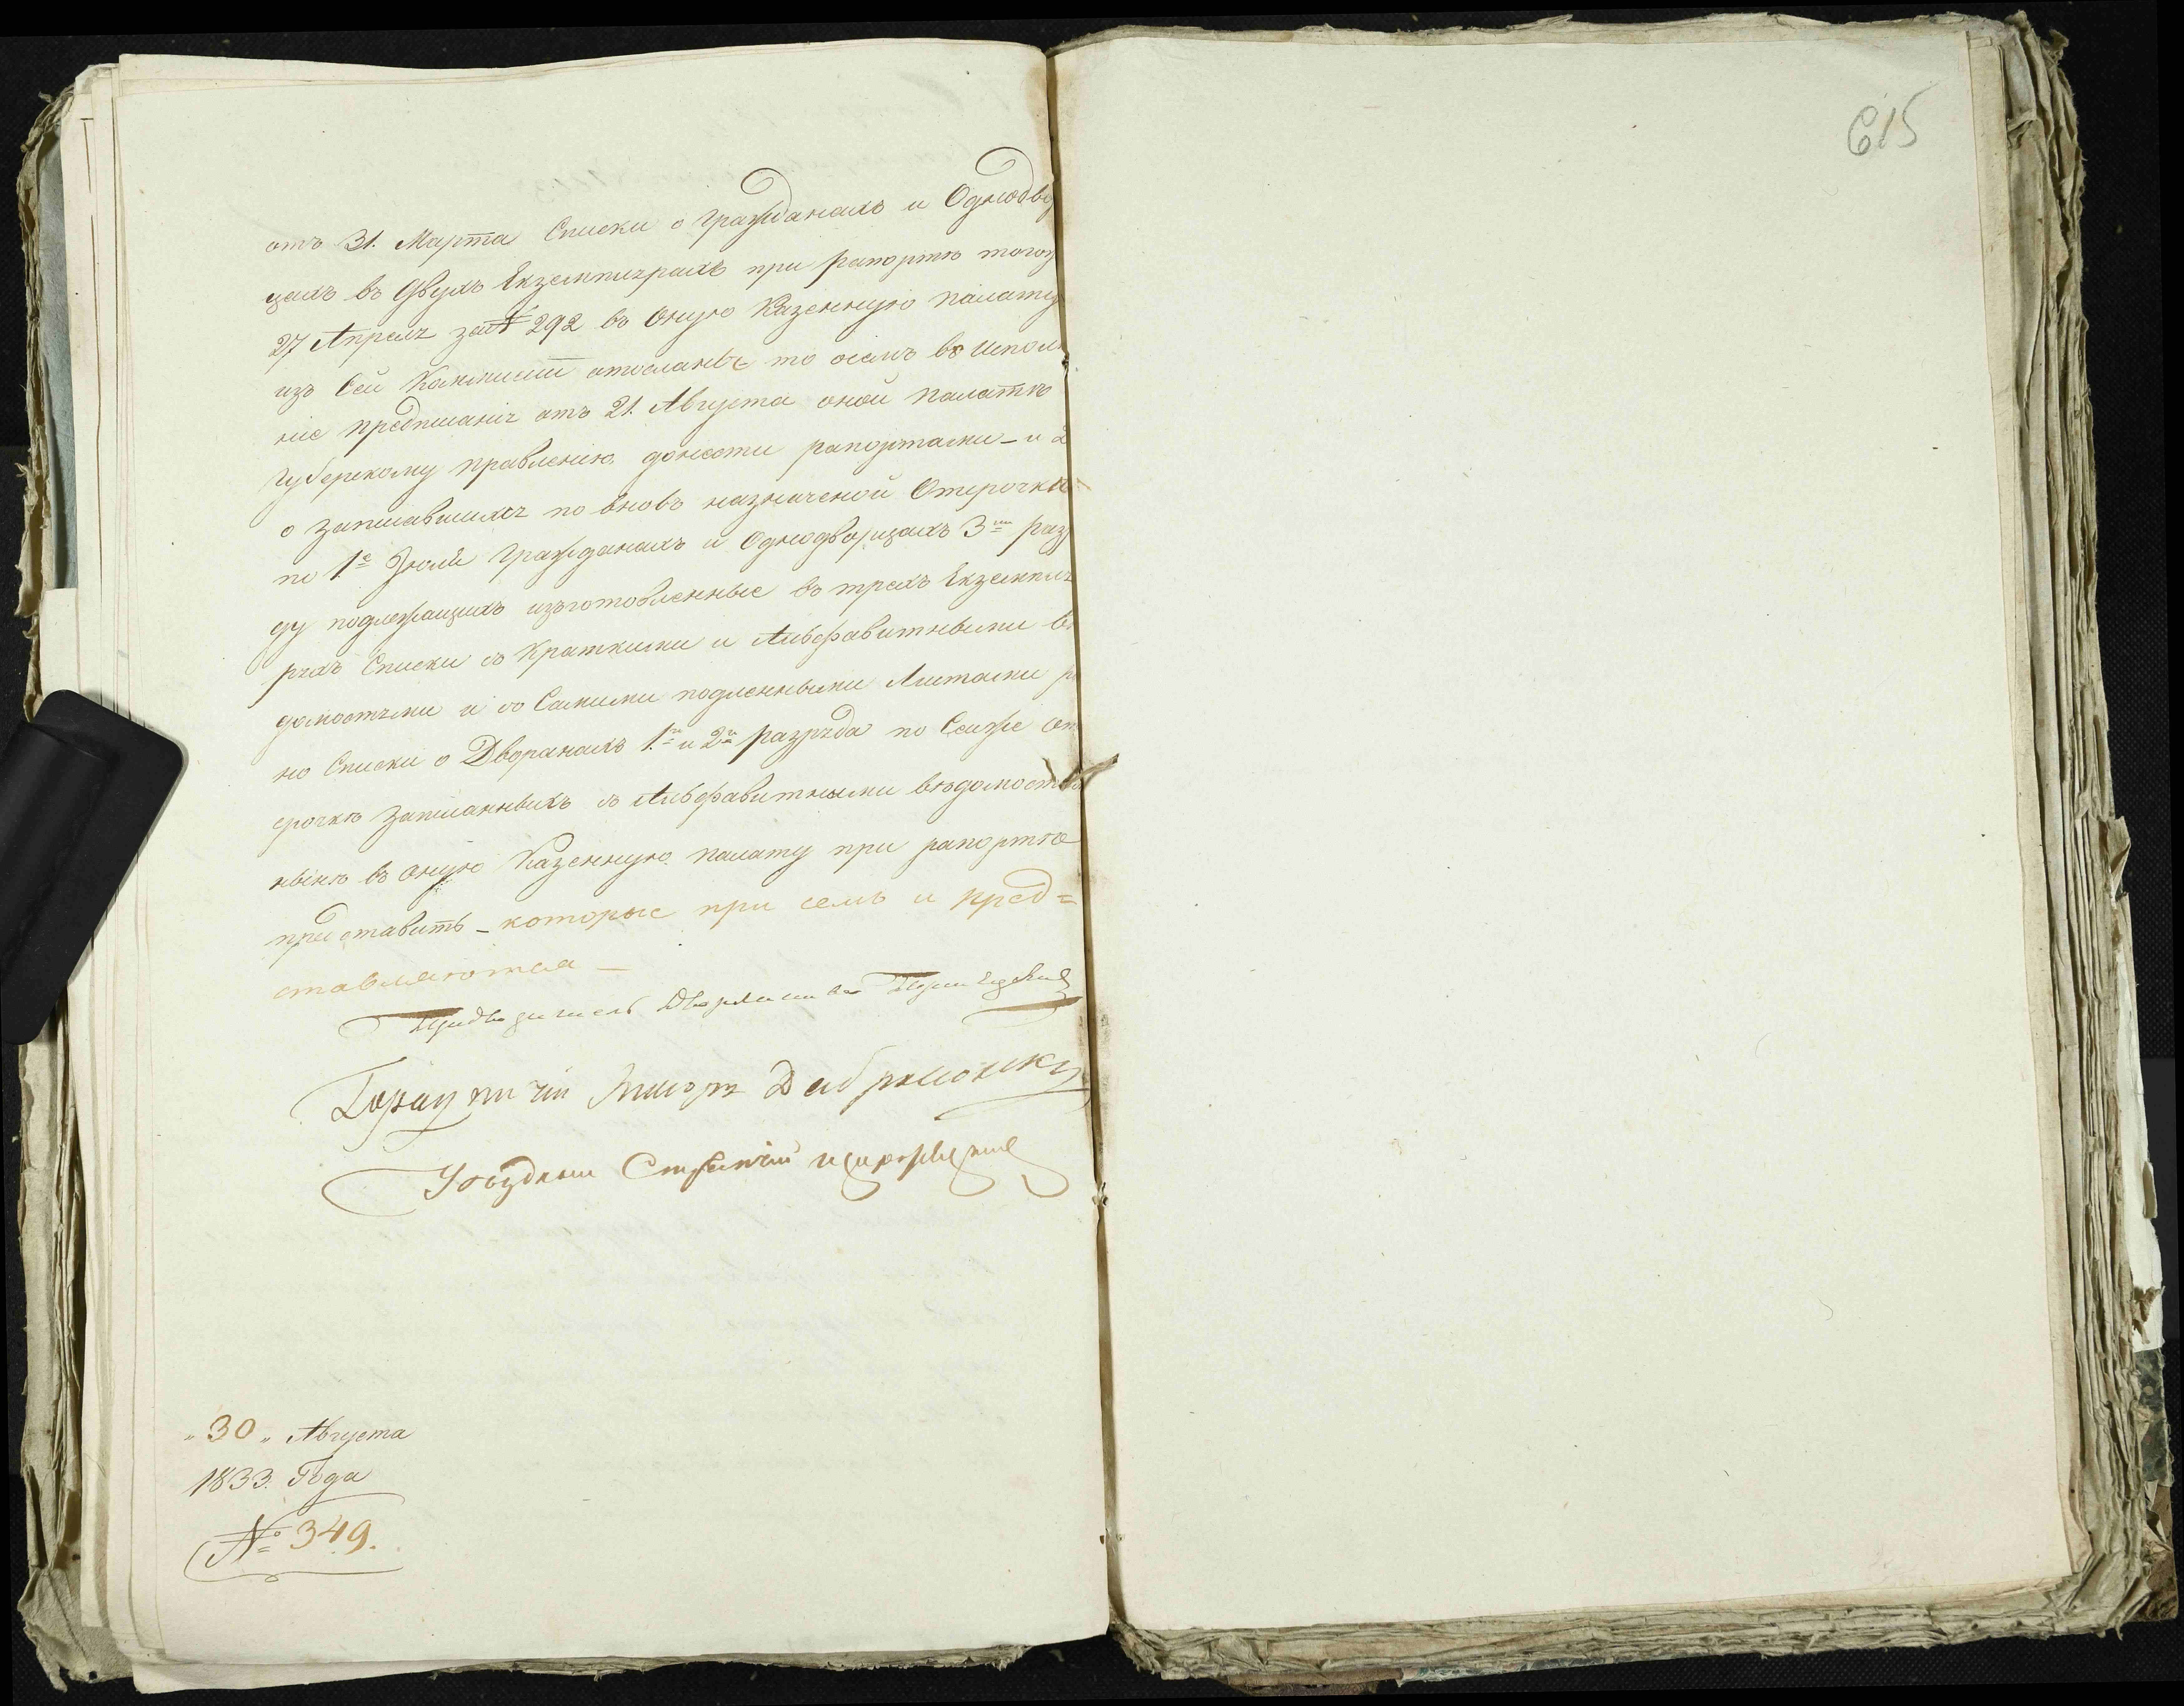 615
отъ 31. Марта Списки о гражданахъ и Однодво
цахъ въ двухъ Екземплярахъ при рапортѣ тогож
27 Апреля за № 292 въ оную Казенную палату
изъ Сей Коммисіи отосланы то осемъ въ исполн
ніе предписанія отъ 21. Августа оной палатѣ
губерскому правленію донести рапортами - и
о записавшихся по вновь назначеной Отсрочкѣ
по 1е Іюля гражданахъ и Однодворцахъ 3го разр
ду подлежащихъ изъготовленные въ трехъ Екземпля
рахъ Списки съ Краткими и Альфавитными в
домостями и со Самими подленными Листами
но Списки о Дворянахъ 1го и 2го разряда по Сейже от
срочкѣ записанныхъ съ Альфавитными вѣдомостя
нынѣ въ оную Казенную палату при рапортѣ
представить - которые при семъ и пред=
ставляются -
Предводитель Дворянства
Уѣздный Стряпчій
„30„ Августа
1833. Года
№ 349.